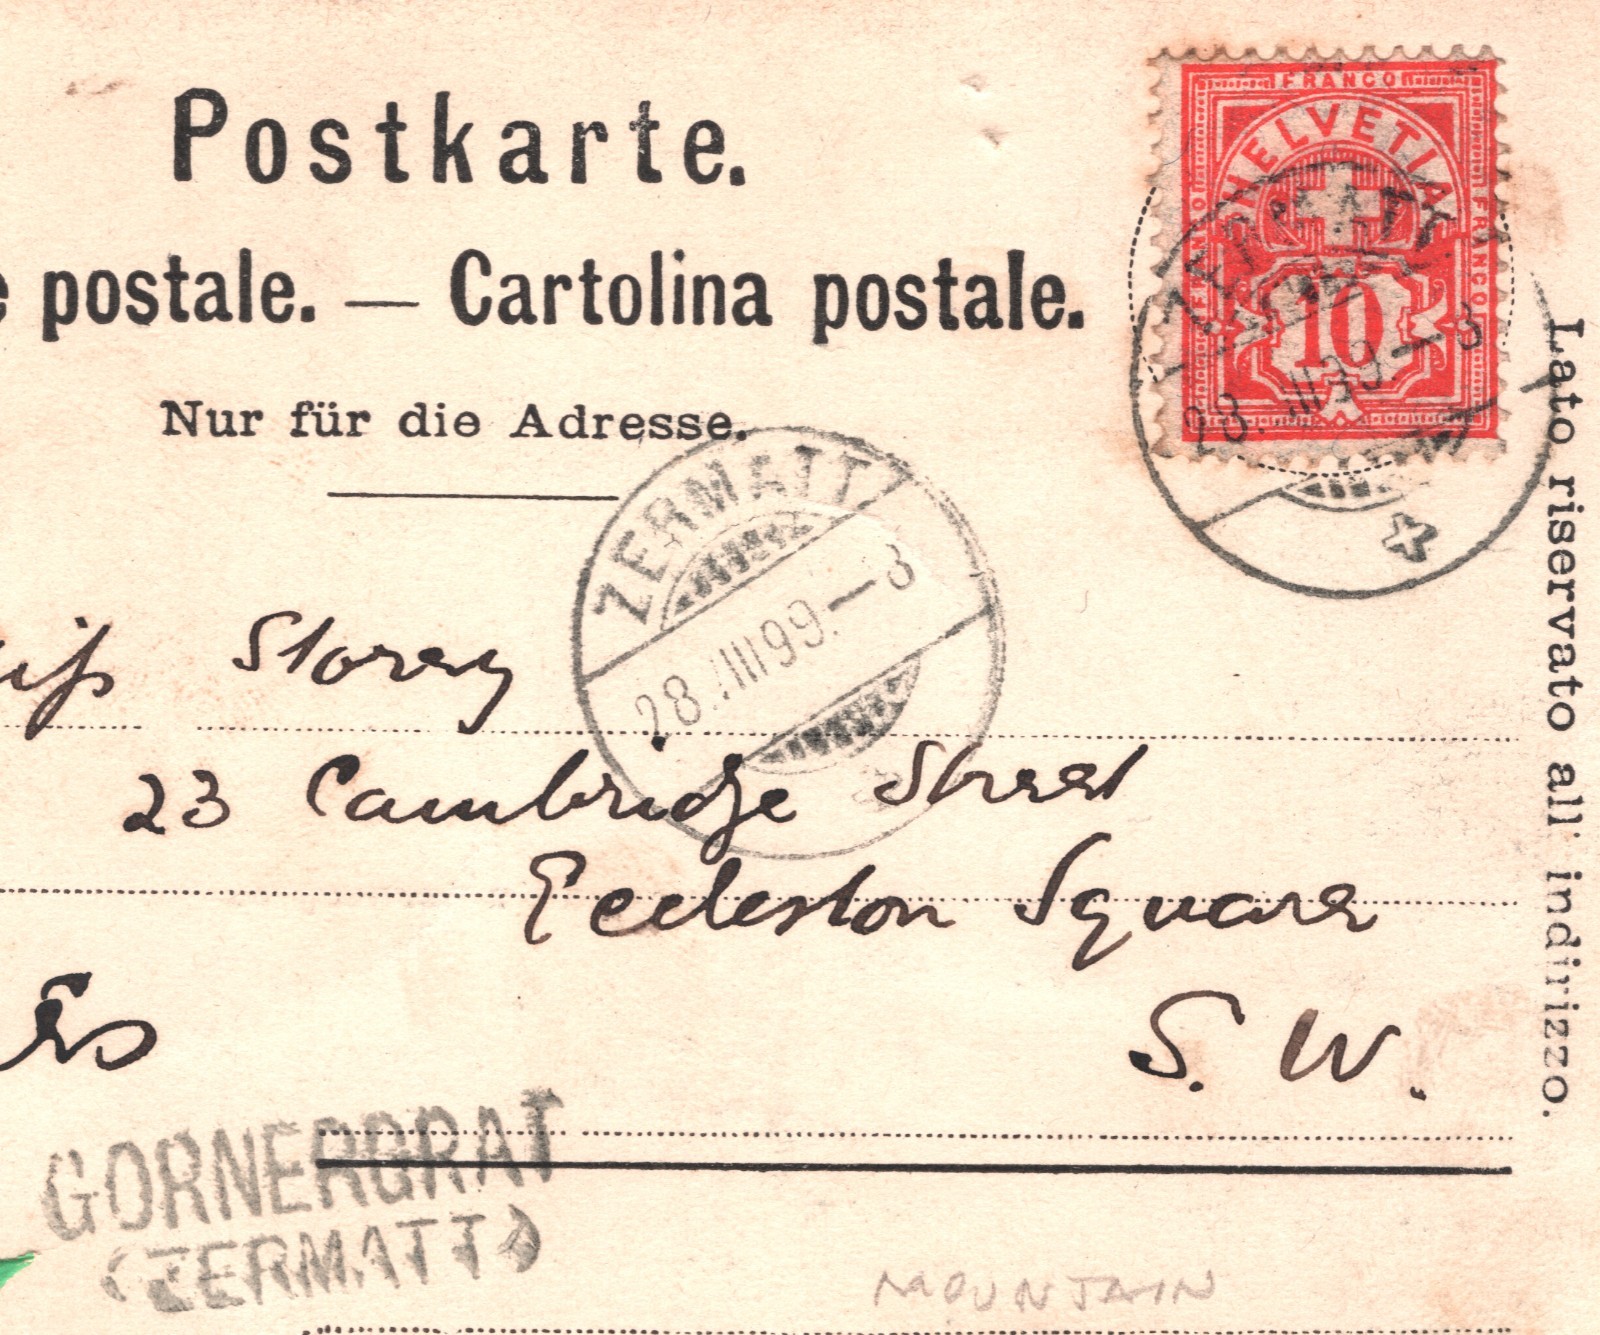 Postkarte.
postale. — Cartolina postale.
Nur für die Adresse.
FRANCO
HELVETIA
FRANCO
FRANCO
10
ZERMATT
28. III 99. — 3
ZERMATT
28. III 99. — 3
Storey
23 Cambridge Street
Eccleston Square
S. W.
GORNERGRAT
(ZERMATT)
MOUNTAIN
Lato riservato all' indirizzo.